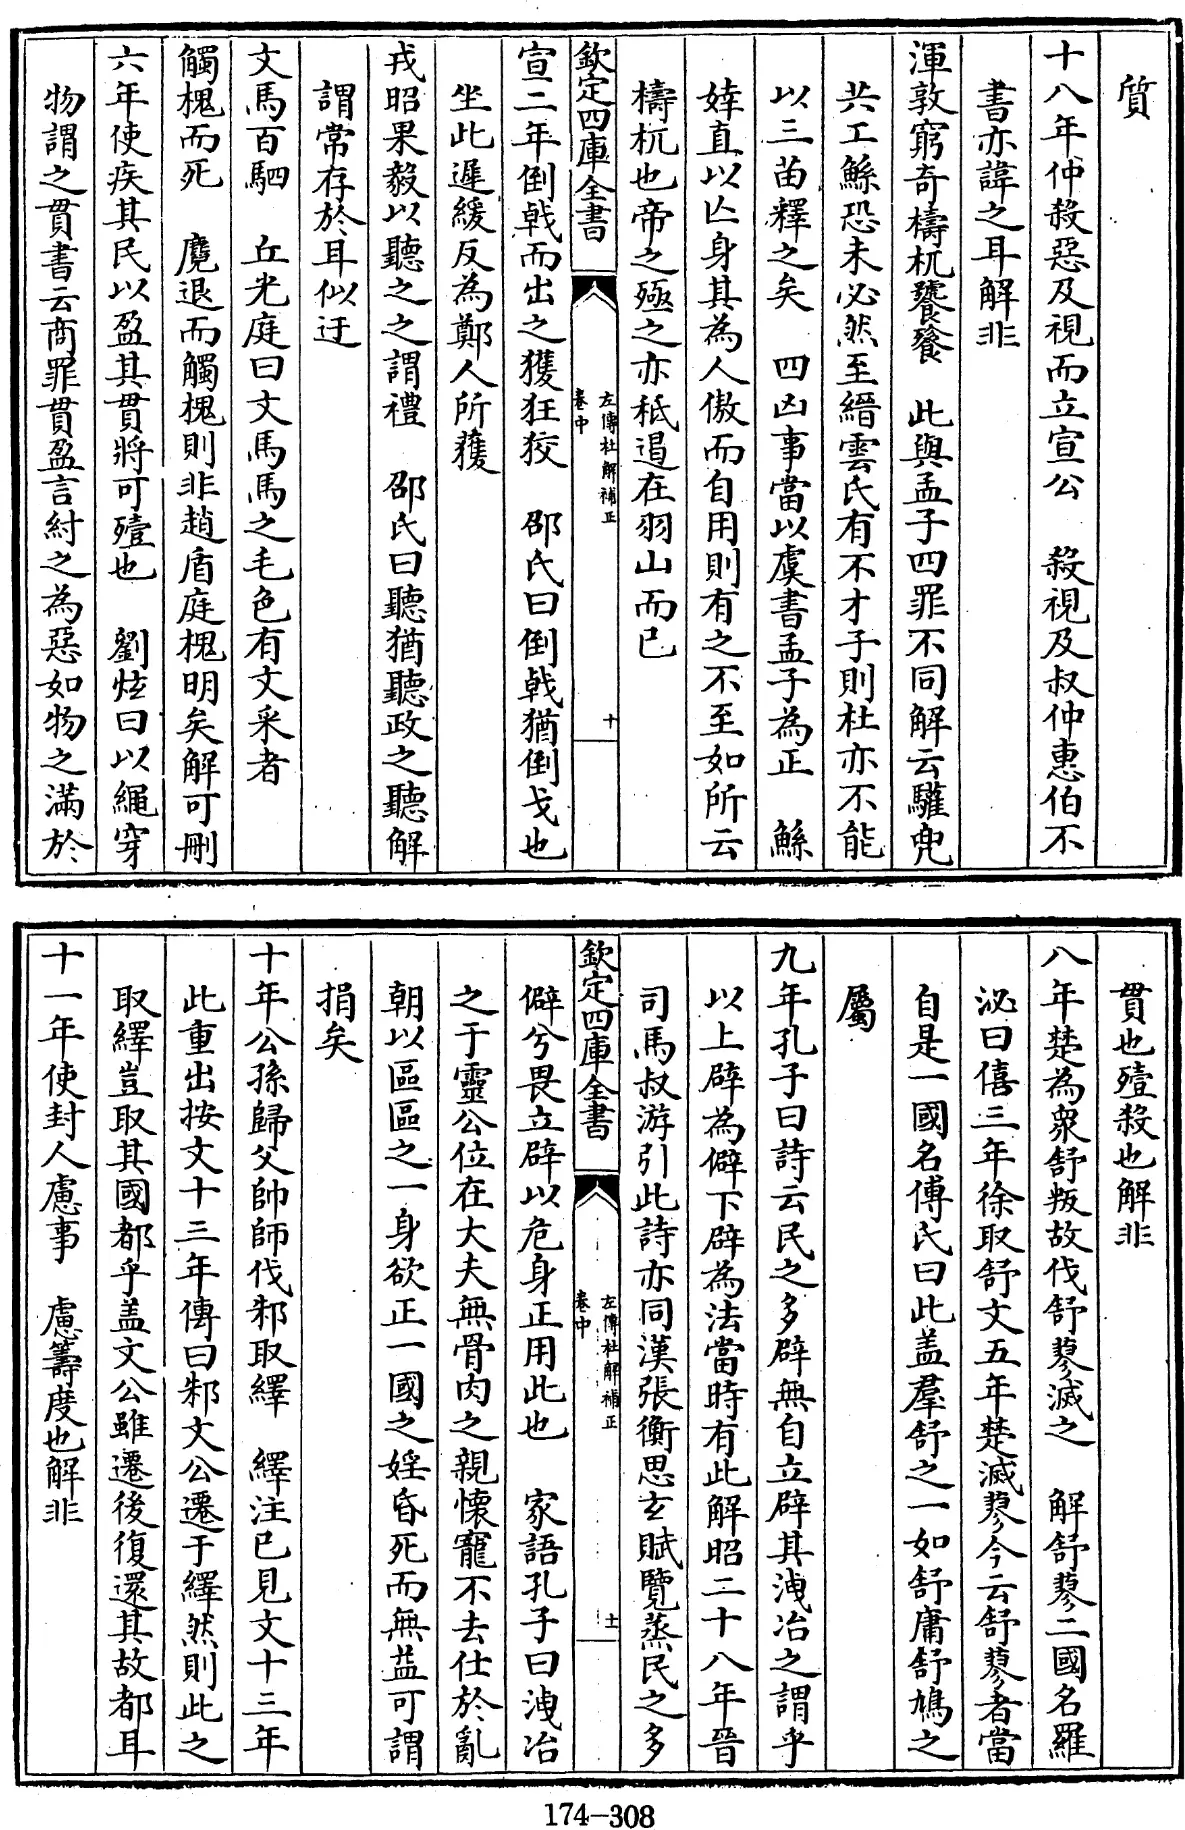 質
十八年仲殺惡及視而立宣公　殺視及叔仲惠伯不
書亦諱之耳解非
渾敦窮奇檮杌饕餮　此與孟子四罪不同解云驩兜
共工鯀恐未必然至縉雲氏有不才子則杜亦不能
以三苗釋之矣　四凶事當以虞書孟子為正　鯀
婞直以亡身其為人傲而自用則有之不至如所云
檮杌也帝之殛之亦秪遏在羽山而已
欽定四庫全書
左傳杜解補正
卷中
十
宣二年倒戟而出之獲狂狡　邵氏曰倒戟猶倒戈也
坐此遲緩反為鄭人所獲
戎昭果毅以聽之之謂禮　邵氏曰聽猶聽政之聽解
謂常存於耳似迂
文馬百駟　丘光庭曰文馬馬之毛色有文采者
觸槐而死　麑退而觸槐則非趙盾庭槐明矣解可刪
六年使疾其民以盈其貫將可殪也　劉炫曰以繩穿
物謂之貫書云商罪貫盈言紂之為惡如物之滿於
貫也殪殺也解非
八年楚為衆舒叛故伐舒蓼滅之　解舒蓼二國名羅
泌曰僖三年徐取舒文五年楚滅蓼今云舒蓼者當
自是一國名傅氏曰此盖羣舒之一如舒庸舒鳩之
屬
九年孔子曰詩云民之多辟無自立辟其洩冶之謂乎
以上辟為僻下辟為法當時有此解昭二十八年晉
司馬叔游引此詩亦同漢張衡思玄賦覽蒸民之多
欽定四庫全書
左傳杜解補正
卷中
十一
僻兮畏立辟以危身正用此也　家語孔子曰洩冶
之于靈公位在大夫無骨肉之親懷寵不去仕於亂
朝以區區之一身欲正一國之婬昏死而無益可謂
捐矣
十年公孫歸父帥師伐邾取繹　繹注已見文十三年
此重出按文十三年傳曰邾文公遷于繹然則此之
取繹豈取其國都乎盖文公雖遷後復還其故都耳
十一年使封人慮事　慮籌度也解非
174-308